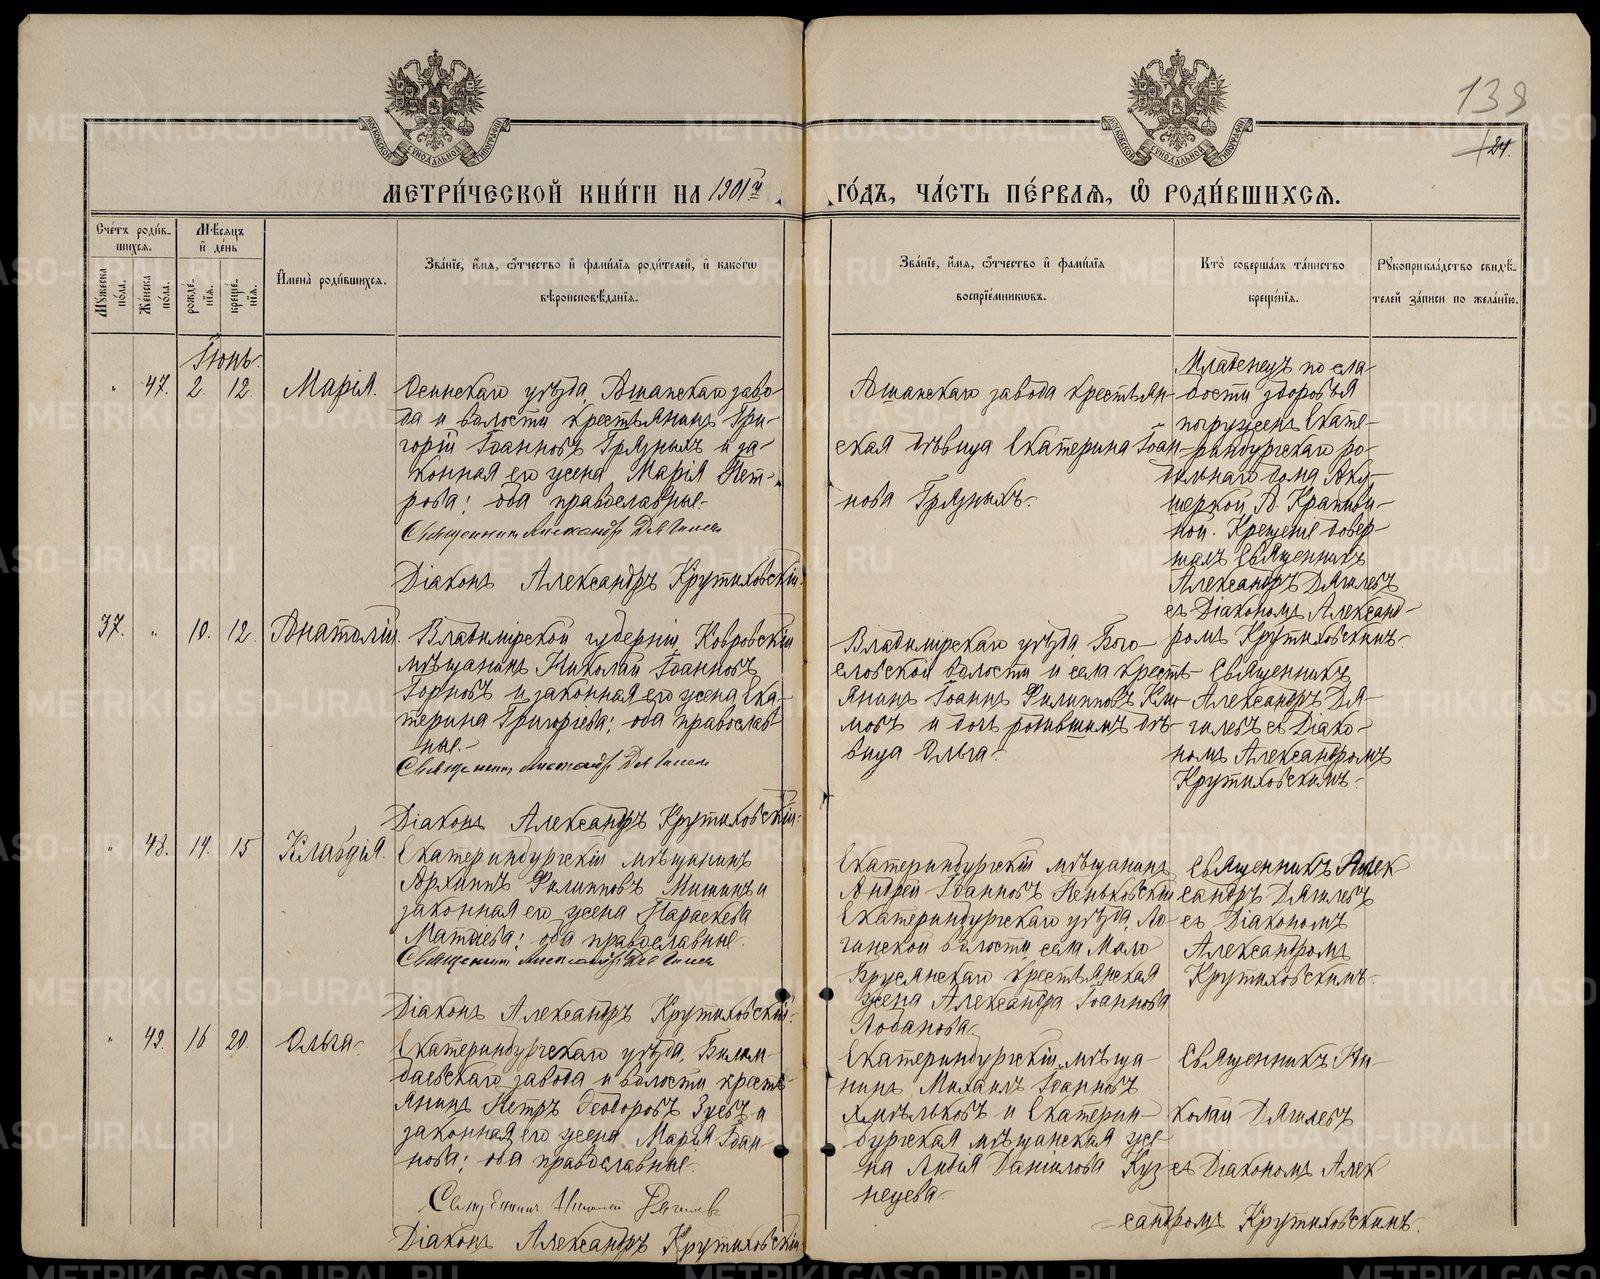 138
24.
МЕТРИ́ЧЕСКОЙ КНИ́ГИ НА 1901й
ГО́ДЪ, ЧА́СТЬ ПЕ́РВАѦ, Ѡ҆ РОДИ́ВШИХСѦ.
Сче́тъ роди́в-
шихсѧ.
Мѣ́сѧцъ
и҆ де́нь
Мꙋ́жеска по́ла.
Же́нска по́ла.
рожде́нїѧ.
креще́нїѧ.
И҆мена̀ роди́вшихсѧ.
Зва́нїе, и҆́мѧ, ѻ҆́тчество и҆ фами́лїѧ роди́телей, и҆ како́гѡ
вѣроисповѣ́данїѧ.
Зва́нїе, и҆́мѧ, ѻ҆́тчество и҆ фами́лїѧ
воспрїе́мникѡвъ.
Кто̀ соверша́лъ та́инство
креще́нїѧ.
Рꙋкоприкла́дство свидѣ́-
телей за́писи по жела́нїю.
Іюнь.
" 47. 2. 12. Марія.
Осинскаго уѣзда, Ашапскаго заво-
да и волости крестьянинъ Гри-
горій Іоанновъ Грязныхъ и за-
конная его жена Марія Пет-
рова; оба православные.
Священникъ Александръ Дягилевъ
Діаконъ Александръ Крутиховскій.
Ашапскаго завода крестьян-
ская дѣвица Екатерина Іоан-
нова Грязныхъ.
Младенецъ по сла-
бости здоровья
погруженъ Екате-
ринбургскаго ро-
дильнаго дома аку-
шеркой А. Крапиви-
ной. Крещеніе довер-
шалъ Священникъ
Александръ Дягилевъ
съ Діакономъ Александ-
ромъ Крутиховскимъ.
37. " 10. 12. Анатолій.
Владимірской губерніи, Ковровскій
мѣщанинъ Николай Іоанновъ
Горновъ и законная его жена Ека-
терина Григорьева; оба православ-
ные.
Священникъ Александръ Дягилевъ
Діаконъ Александръ Крутиховскій.
Владимірскаго уѣзда, Бого-
словской волости и села кресть-
янинъ Іоаннъ Филипповъ Кли-
мовъ и дочь родившимъ дѣ-
вица Ольга.
Священникъ
Александръ Дя-
гилевъ съ Діако-
номъ Александромъ
Крутиховскимъ.
" 48. 14. 15 Клавдія.
Екатеринбургскій мѣщанинъ
Архиппъ Филипповъ Мишинъ и
законная его жена Параскева
Матѳіева; оба православные.
Священникъ Александръ Дягилевъ
Діаконъ Александръ Крутиховскій.
Екатеринбургскій мѣщанинъ
Андрей Іоанновъ Пеньковскій
Екатеринбургскаго уѣзда, Ло-
гинской волости села Мало
Брусянскаго крестьянская
жена Александра Іоаннова
Лобанова.
Священникъ Алек
сандръ Дягилевъ
съ Діакономъ
Александромъ
Крутиховскимъ.
" 49. 16 20. Ольга.
Екатеринбургскаго уѣзда, Билим-
баевскаго завода и волости кресть-
янинъ Петръ Ѳеодоровъ Зуевъ и
законная его жена Марія Іоан-
нова; оба православные.
Священникъ Николай Дягилевъ
Діаконъ Александръ Крутиховскій
Екатеринбургскій мѣща-
нинъ Михаилъ Іоанновъ
Хмѣльковъ и Екатерин-
бургская мѣщанская же-
на Лидія Даніилова Куз-
нецева.
Священникъ Ни-
колай Дягилевъ
съ Діакономъ Алек
сандромъ Крутиховскимъ.
METRIKI.GASO-URAL.RU